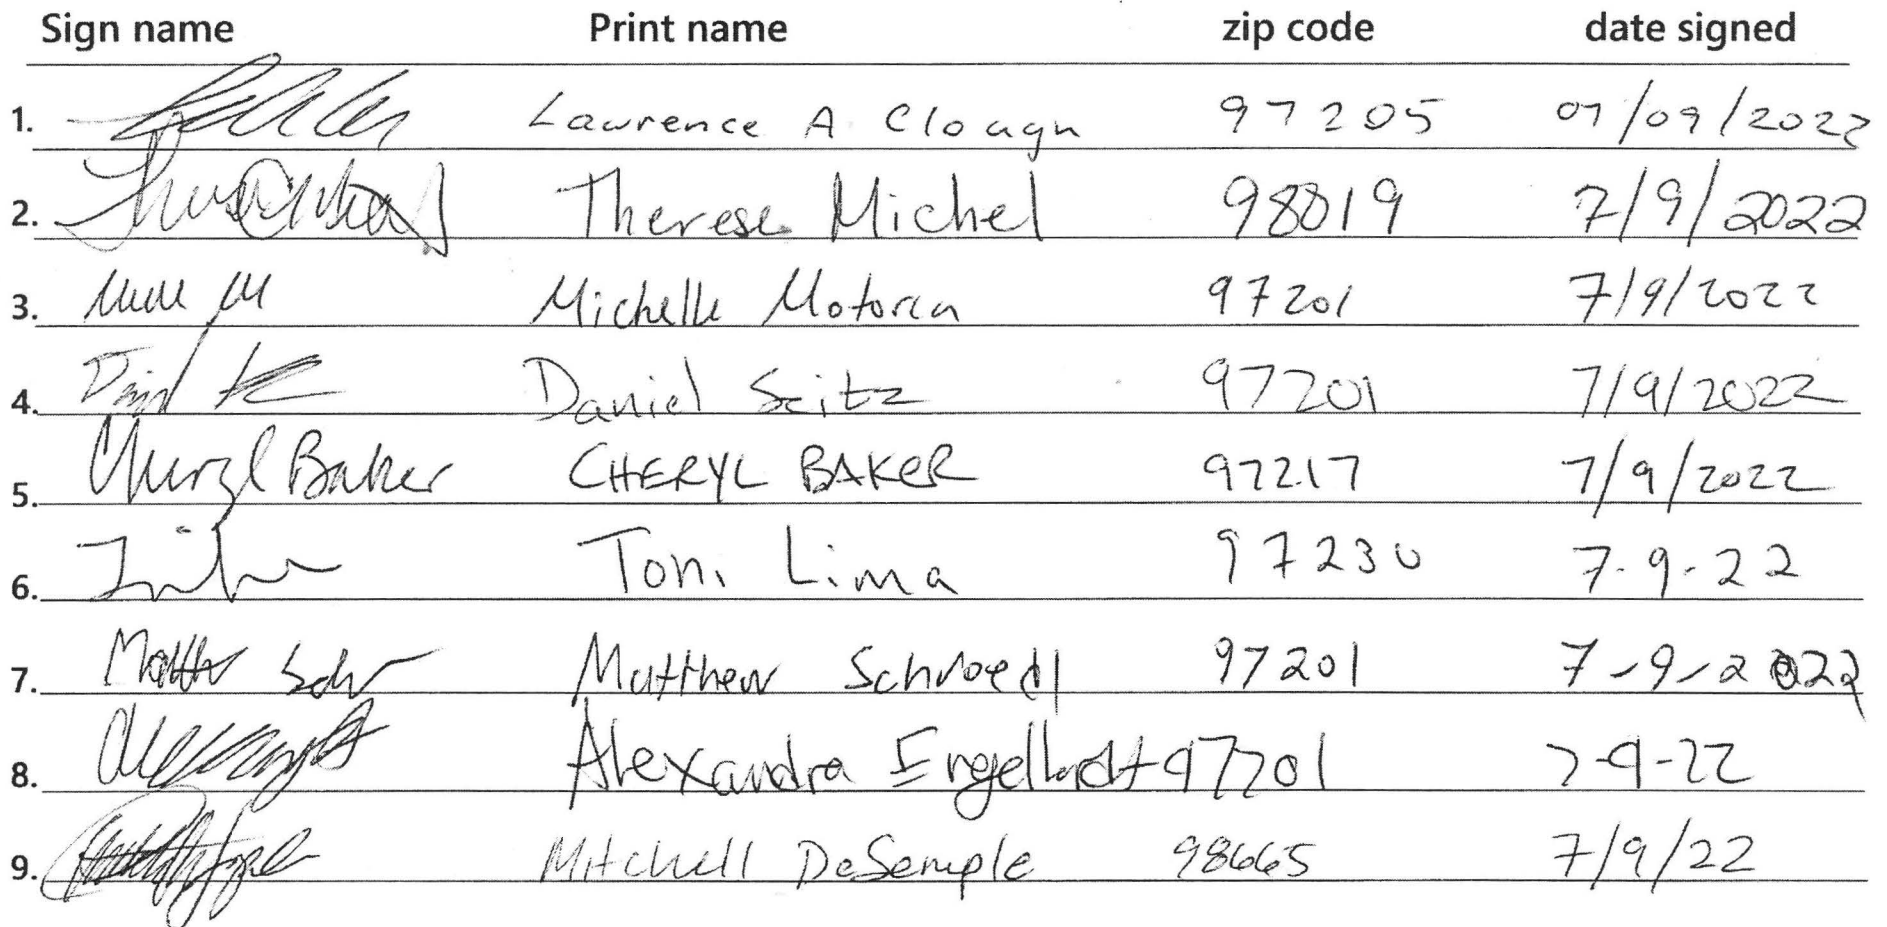 Sign name Print name zip code date signed
1. Lawrence A Clough 97205 07/09/2022
2. Therese Michel 98819 7/9/2022
3. Michelle 97201 7/9/2022
4. Daniel Seitz 97201 7/9/2022
5. Cheryl Baker CHERYL BAKER 97217 7/9/2022
6. Toni Lima 97230 7-9-22
7. Matthew 97201 7-9-2022
8. Alexandra 97201 7-9-22
9. Mitchell DeSemple 98665 7/9/22